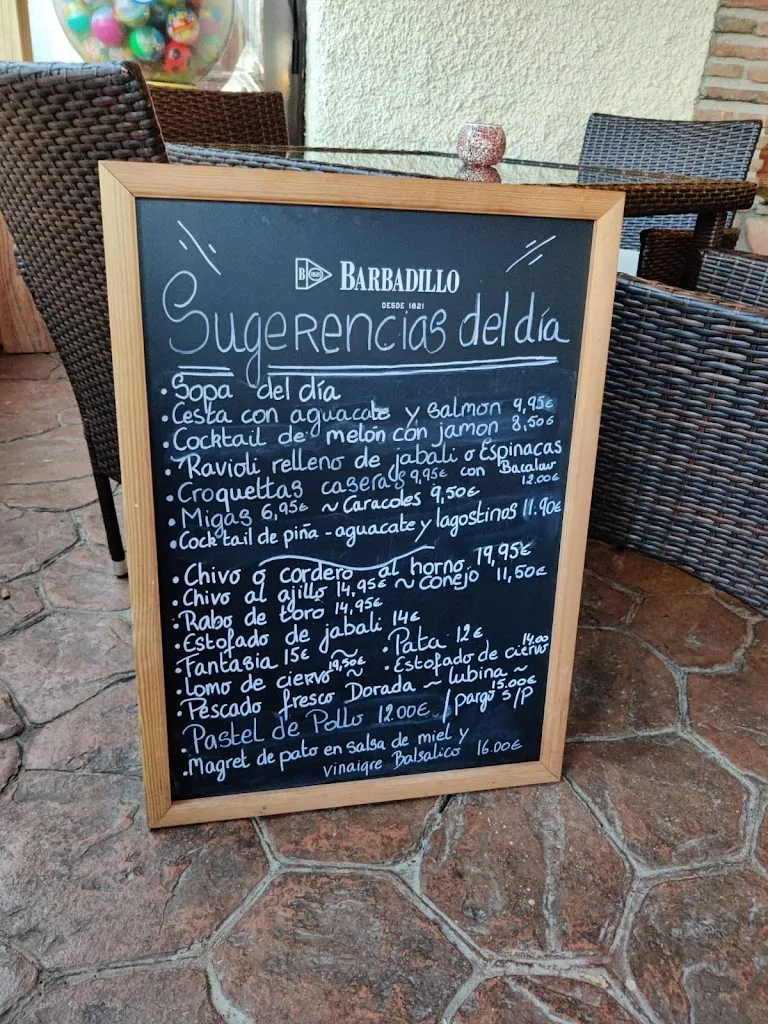 B 1821 BARBADILLO
DESDE 1821
Sugerencias del día
• Sopa del día
• Cesta con aguacate y salmon 9,95€
• Cocktail de melón con jamon 8,50€
• Ravioli relleno de jabali o Espinacas
• Croquettas caseras 9,95€ con Bacalao 12.00€
• Migas 6,95€ ~ Caracoles 9,50€
• Cocktail de piña - aguacate y lagostinos 11.90€
• Chivo o cordero al horno 19,95€
• Chivo al ajillo 14,95€ ~ conejo 11,50€
• Rabo de toro 14,95€
• Estofado de jabali 14€
Fantasia 15€ ~ • Pata 12€
• Lomo de ciervo 19,50€ ~ • Estofado de ciervo 14.00
• Pescado fresco Dorada ~ lubina ~ 15.00€
• Pastel de Pollo 12.00€ / pargo s/P
• Magret de pato en salsa de miel y
vinaigre Balsalico 16.00€